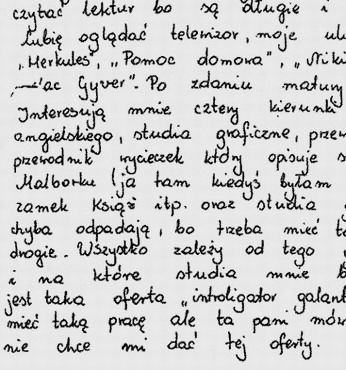 czytać lektur bo są długie i
lubię oglądać telewizor, moje ulu
„Herkules", „Pomoc domowa", „Niki
ac Gyver". Po zdaniu matury
Interesują mnie cztery kierunki
angielskiego, studia graficzne, przew
przewodnik wycieczek który opisuje s
Malborku (ja tam kiedyś byłam
zamek Książ itp. oraz studia
chyba odpadają, bo trzeba mieć ta
drogie. Wszystko zależy od tego
i na które studia mnie b
jest taka oferta „introligator galant
mieć taką pracę ale ta pani mów
nie chce mi dać tej oferty.